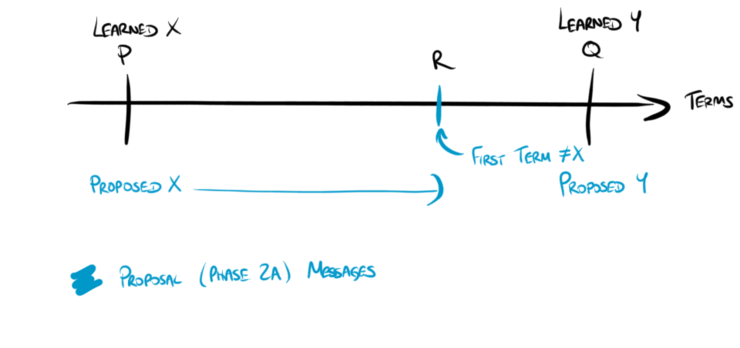 LEARNED X
P
LEARNED Y
Q
R
TERMS
FIRST TERM ≠X
PROPOSED X
PROPOSED Y
PROPOSAL (PHASE 2A) MESSAGES